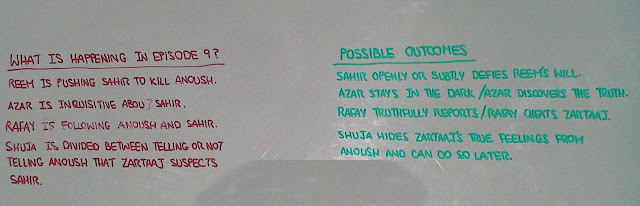 WHAT IS HAPPENING IN EPISODE 9?
REEM IS PUSHING SAHIR TO KILL ANOUSH.
AZAR IS INQUISITIVE ABOUT SAHIR.
RAFAY IS FOLLOWING ANOUSH AND SAHIR.
SHUJA IS DIVIDED BETWEEN TELLING OR NOT
TELLING ANOUSH THAT ZARTAAJ SUSPECTS
SAHIR.
POSSIBLE OUTCOMES
SAHIR OPENLY OR SUBTLY DEFIES REEM'S WILL.
AZAR STAYS IN THE DARK / AZAR DISCOVERS THE TRUTH.
RAFAY TRUTHFULLY REPORTS / RAFAY CHEATS ZARTAAJ.
SHUJA HIDES ZARTAAJ'S TRUE FEELINGS FROM
ANOUSH AND CAN DO SO LATER.